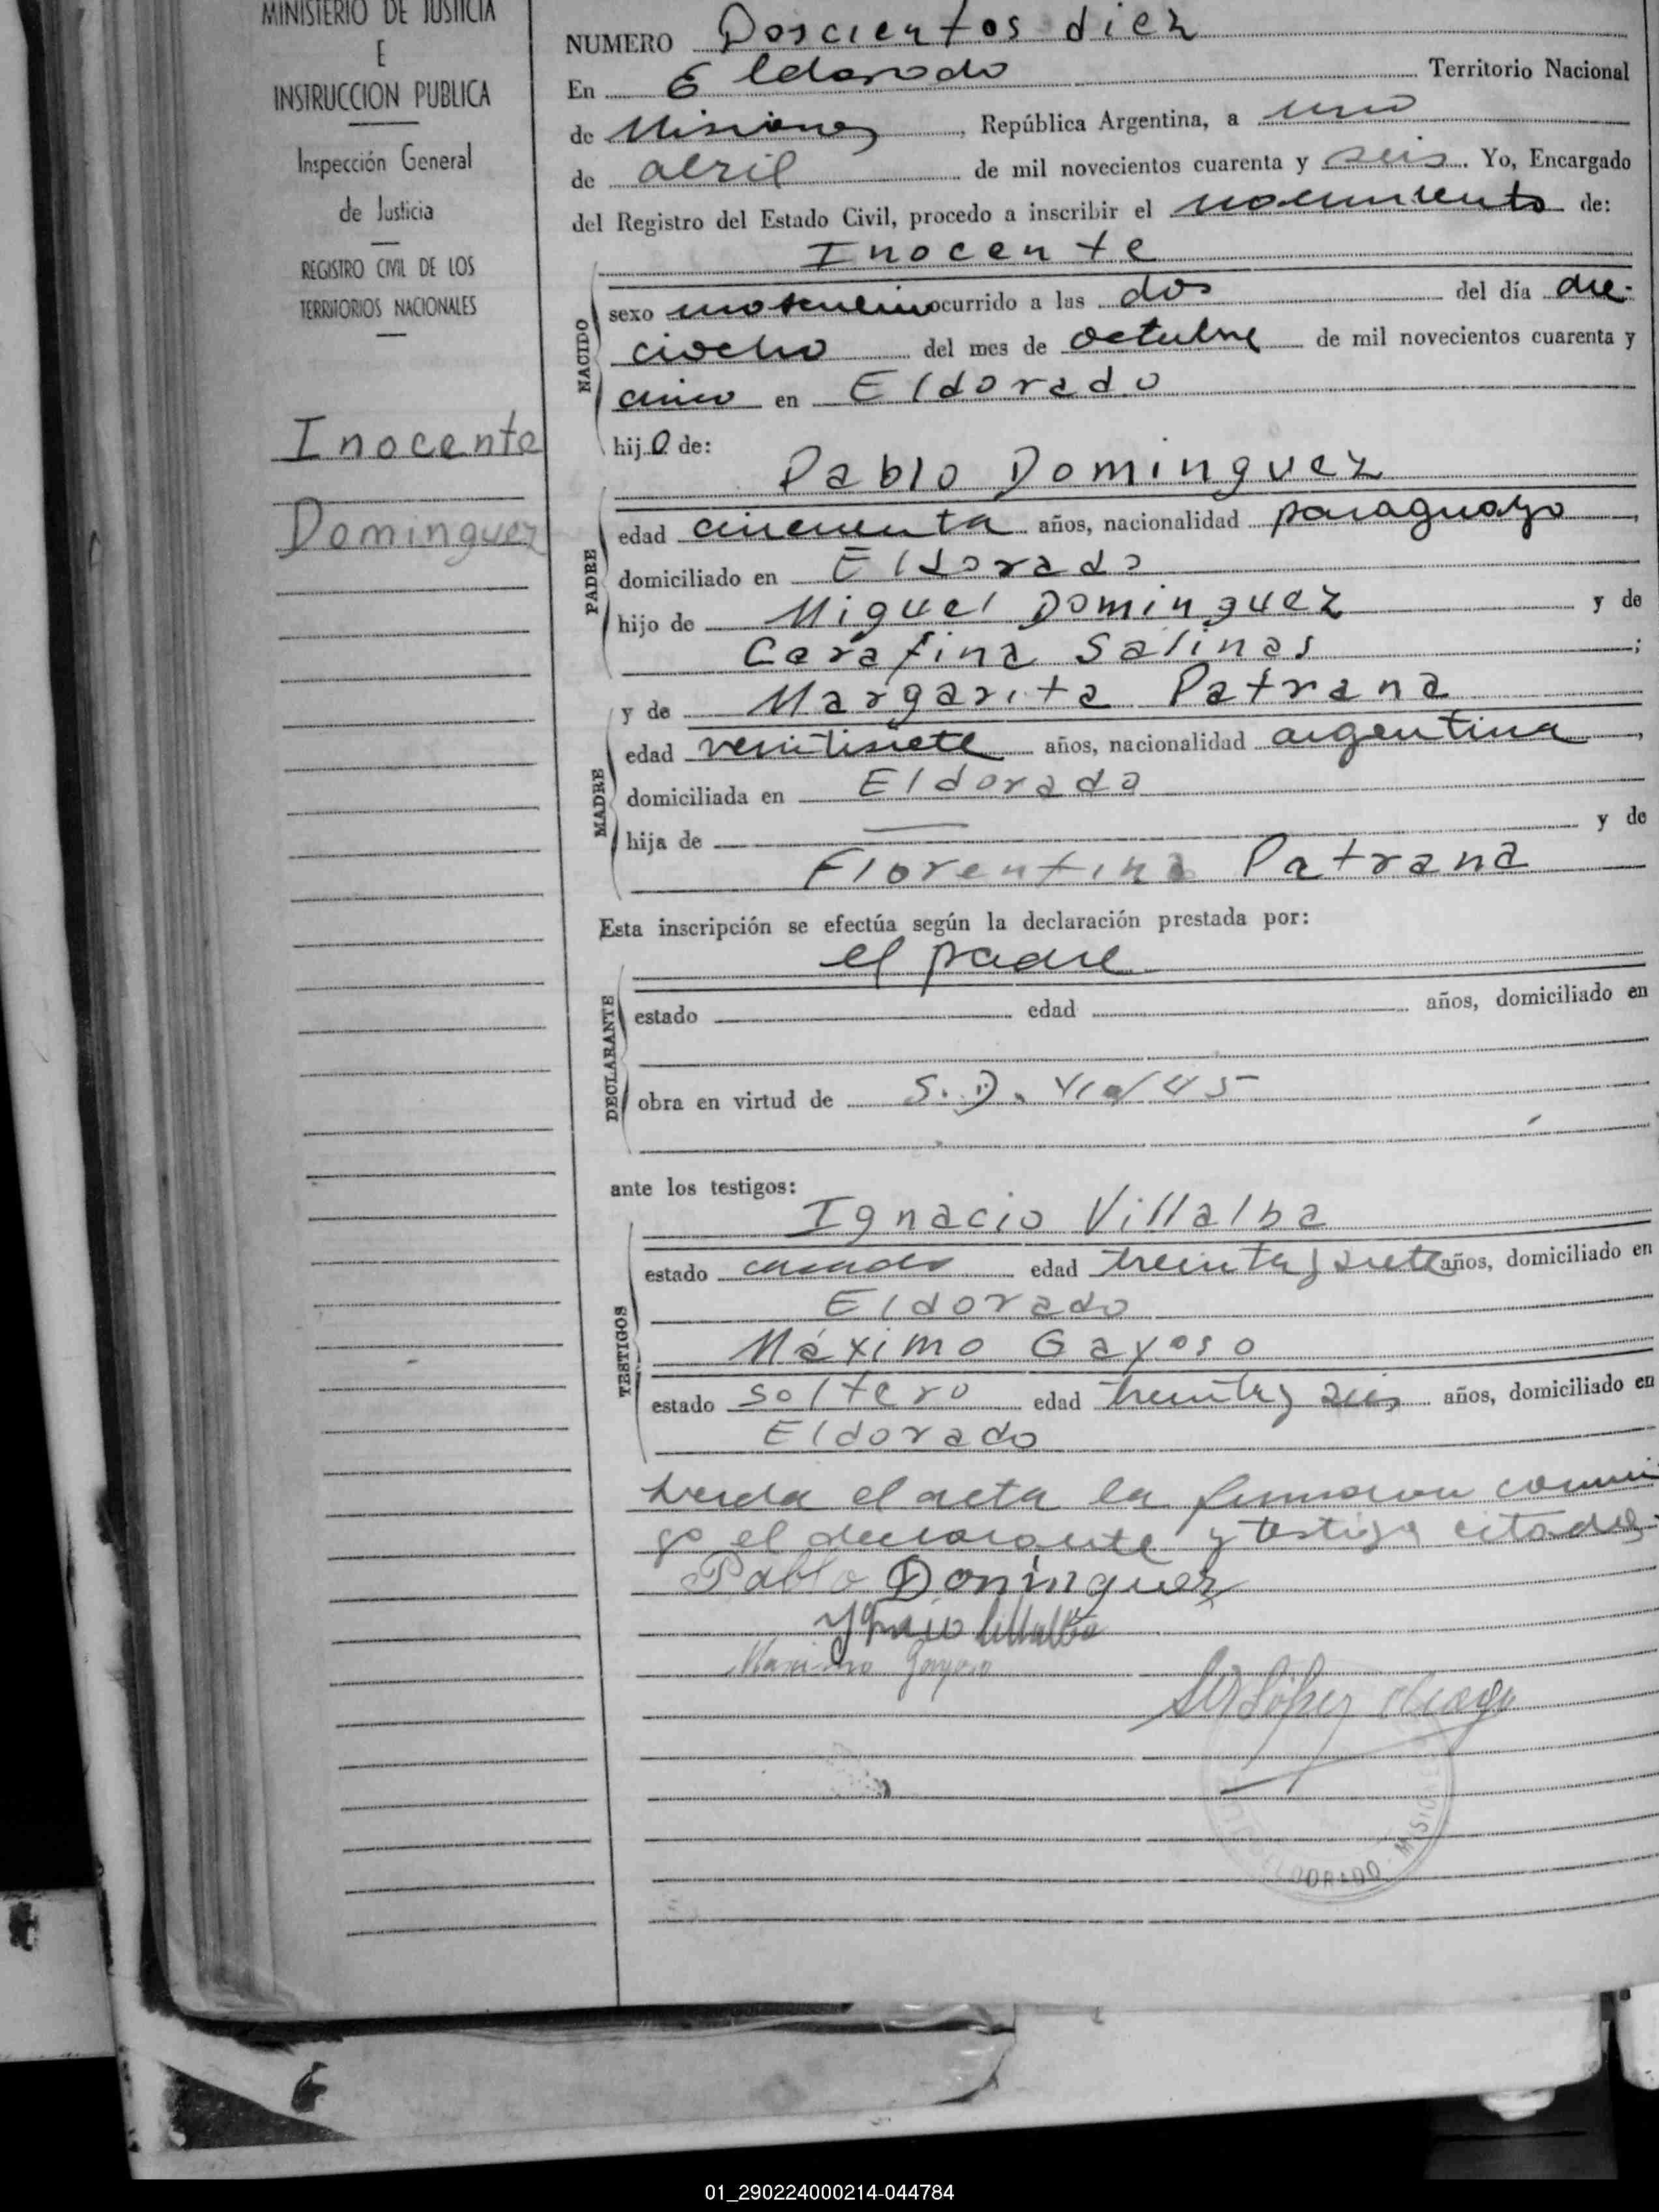 MINISTERIO DE JUSTICIA
E
INSTRUCCION PUBLICA
Inspección General
de Justicia
REGISTRO CIVIL DE LOS
TERRITORIOS NACIONALES
Inocente
Dominguez
NUMERO Doscientos diez
En Eldorado Territorio Nacional
de Misiones, República Argentina, a uno
de abril de mil novecientos cuarenta y seis. Yo, Encargado
del Registro del Estado Civil, procedo a inscribir el nacimiento de:
Inocente
NACIDO
sexo masculino ocurrido a las dos del día die-
ciocho del mes de octubre de mil novecientos cuarenta y
cinco en Eldorado
hijo de:
Pablo Dominguez
PADRE
edad cincuenta años, nacionalidad paraguayo,
domiciliado en Eldorado
hijo de Miguel Dominguez y de
Cerafina Salinas;
y de Margarita Patrana
MADRE
edad veintisiete años, nacionalidad argentina,
domiciliada en Eldorado
hija de — y de
Florentina Patrana
Esta inscripción se efectúa según la declaración prestada por:
el padre
DECLARANTE
estado edad años, domiciliado en
obra en virtud de S.D. /45
ante los testigos:
Ignacio Villalba
TESTIGOS
estado casado edad treinta y siete años, domiciliado en
Eldorado
Máximo Gayoso
estado soltero edad treinta y seis años, domiciliado en
Eldorado
Leida el acta la firmaron conmi
go el declarante y testigos citados.
Pablo Dominguez
Ygnacio Villalba
Maximo Gayoso
López
ELDORADO MISIONES
01_290224000214-044784